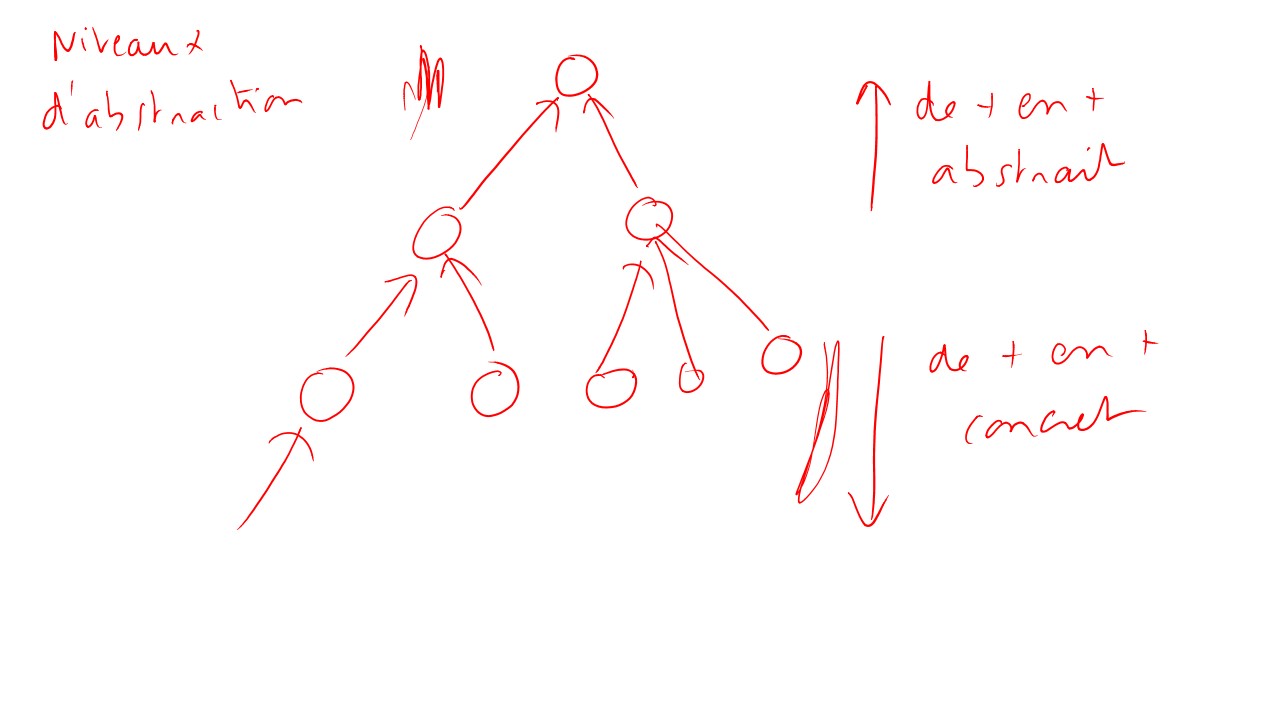 Niveaux
d'abstraction
de + en +
abstrait
de + en +
concret